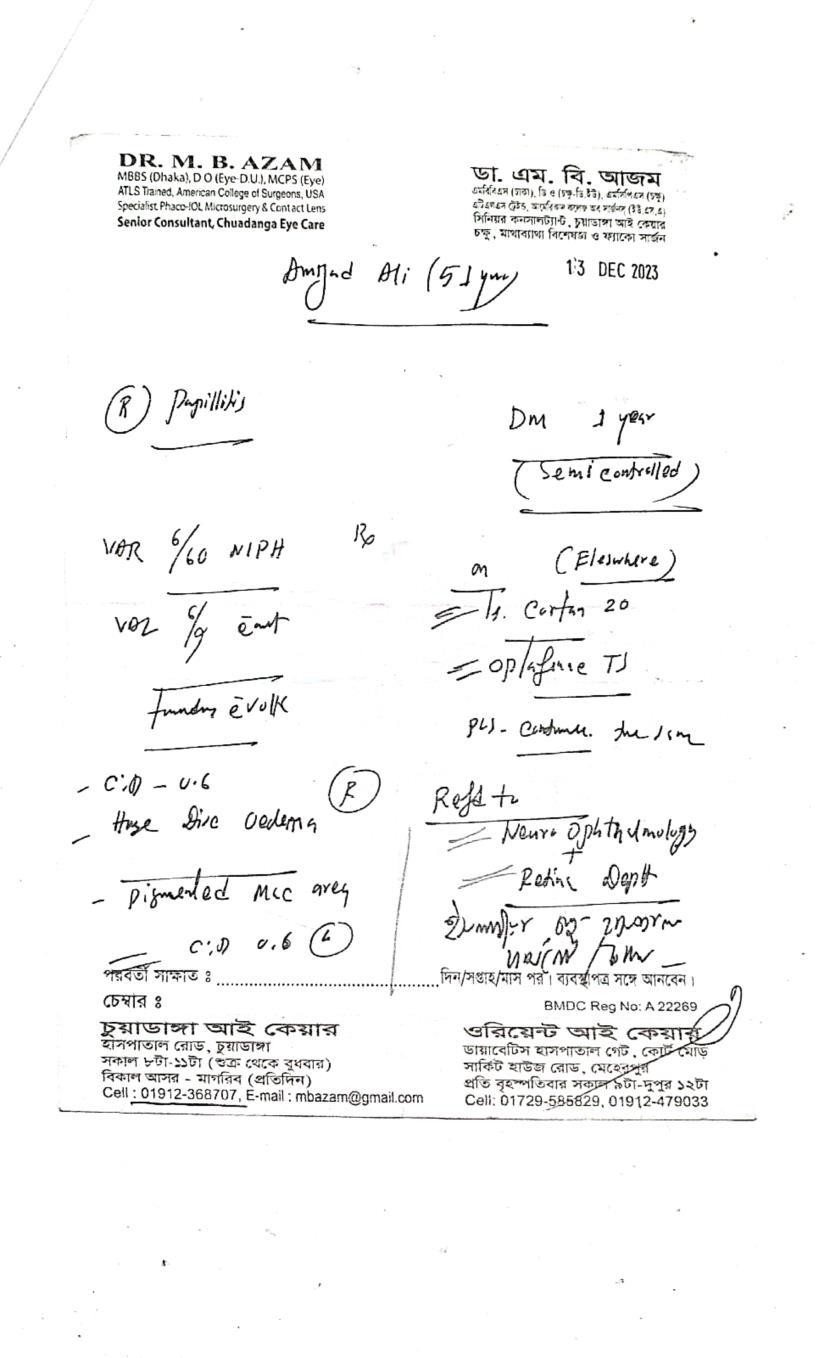 DR. M. B. AZAM
MBBS (Dhaka), D O (Eye-D.U.), MCPS (Eye)
ATLS Trained, American College of Surgeons, USA
Specialist Phaco-IOL Microsurgery & Contact Lens
Senior Consultant, Chuadanga Eye Care
ডা. এম. বি. আজম
এমবিবিএস (ঢাকা), ডি ও (চক্ষু-ডি.ইউ), এমসিপিএস (চক্ষু)
এটিএলএস ট্রেইন্ড, আমেরিকান কলেজ অব সার্জনস্ (ইউ.এস.এ)
সিনিয়র কনসালট্যান্ট, চুয়াডাঙ্গা আই কেয়ার
চক্ষু, মাথাব্যাথা বিশেষজ্ঞ ও ফ্যাকো সার্জন
13 DEC 2023
Amjad Ali (51 years)
(R) Papillitis
VAR 6/60 NIPH
VAL 6/9
Fundus
- C:D - 0.6 (R)
- Huge Disc Oedema
- Pigmented Mac area
C:D 0.6 (L)
DM 1 year
(Semi controlled)
Rx
on (Eleswhere)
Ts. Cortan 20
PLS - Continue.
Refd to
Neuro Ophthalmology
+
Retina Deptt
পরবর্তী সাক্ষাত ঃ ........................................দিন/সপ্তাহ/মাস পর। ব্যবস্থাপত্র সঙ্গে আনবেন।
চেম্বার ঃ
চুয়াডাঙ্গা আই কেয়ার
হাসপাতাল রোড, চুয়াডাঙ্গা
সকাল ৮টা-১১টা (শুক্র থেকে বুধবার)
বিকাল আসর - মাগরিব (প্রতিদিন)
Cell : 01912-368707, E-mail : mbazam@gmail.com
BMDC Reg No: A 22269
ওরিয়েন্ট আই কেয়ার
ডায়াবেটিস হাসপাতাল গেট, কোর্ট মোড়
সার্কিট হাউজ রোড, মেহেরপুর
প্রতি বৃহস্পতিবার সকাল ৯টা-দুপুর ১২টা
Cell: 01729-585829, 01912-479033